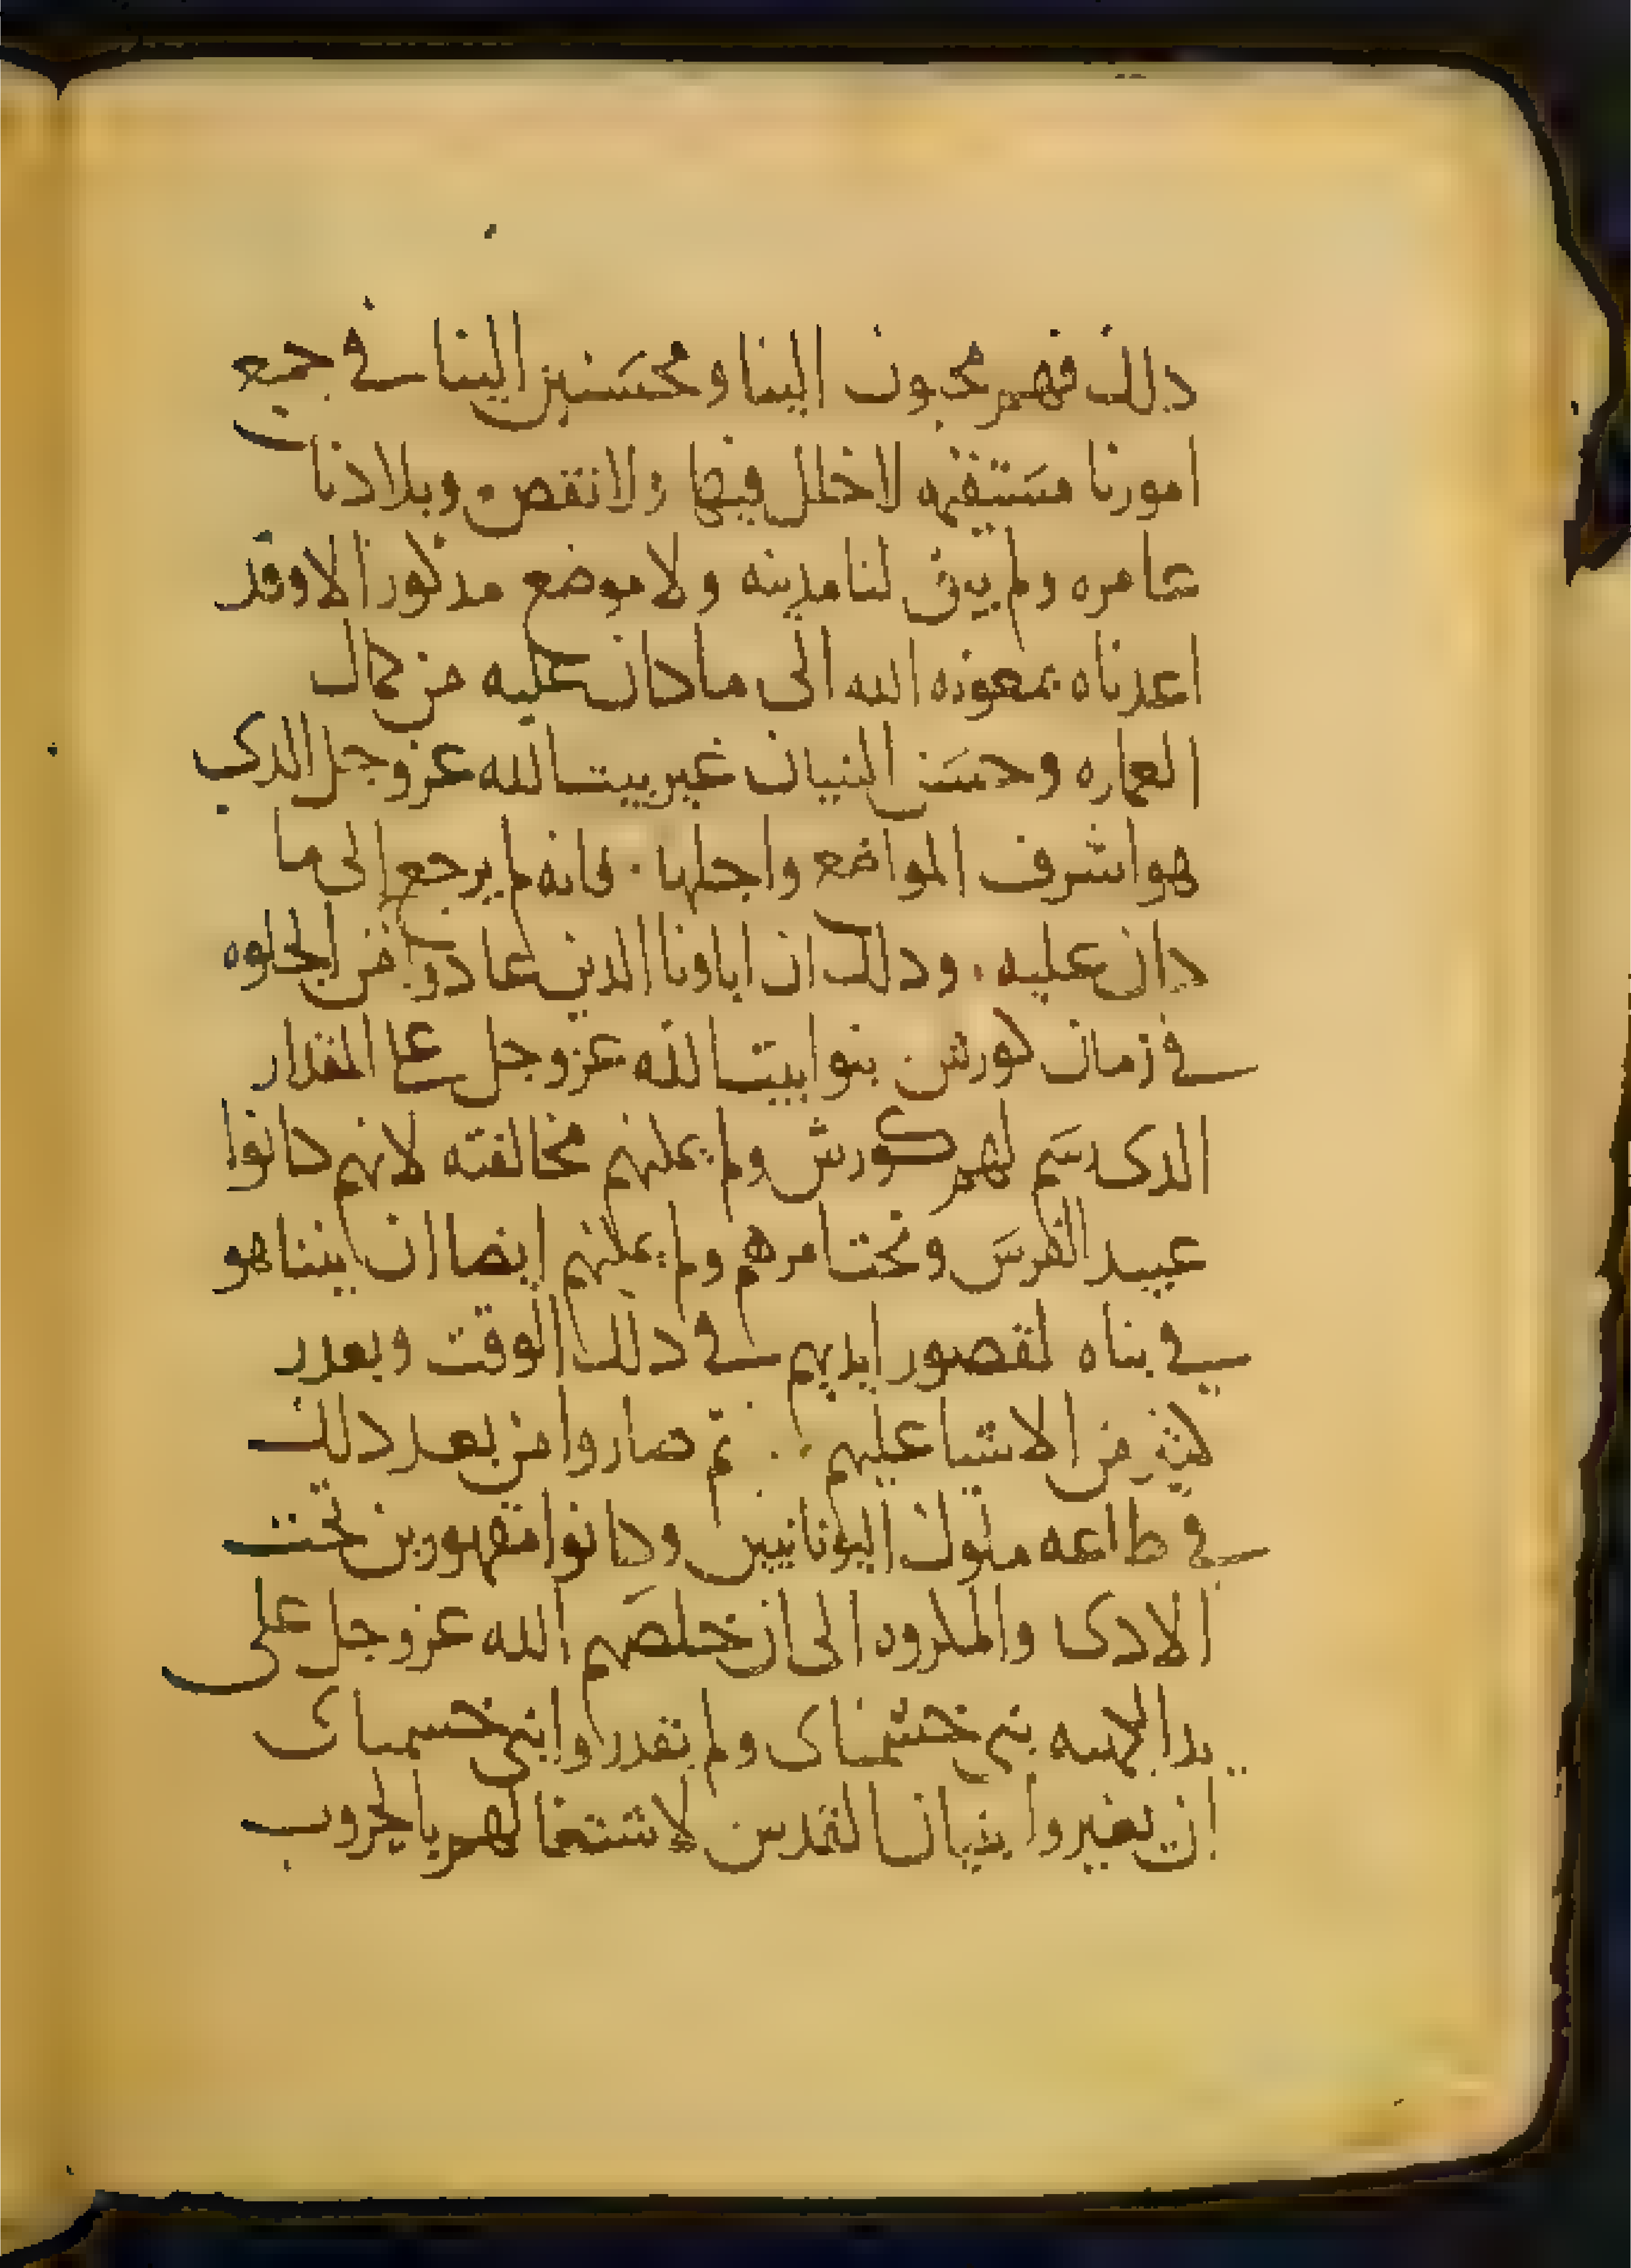 دلك فهم محبون الينا ومحسنين الينا في جميع
امورنا مستقيمه لا خلل فيها ولا نقص . وبلادنا
عامره ولم يبق لنا مدينه ولا موضع مذكور الا وقد
اعدناه بمعونه الله الى ما كان عليه من كمال
العماره وحسن البنيان غير بيت الله عز وجل الدي
هو اشرف المواضع واجلها . فانه لم يرجع الى ما
كان عليه . ودلك ان اباونا الدين عادوا من الجلوه
في زمان كورش بنوا بيت الله عز وجل على المقدار
الدي رسم لهم كورش ولم يمكنهم مخالفته لانهم كانوا
عبيد الفرس وتحت امرهم ولم يمكنهم ايضا ان
في بناه لقصور ايديهم في دلك الوقت وبعدر
كثير من الاشيا عليهم . ثم صاروا من بعد دلك
في طاعه ملوك اليونانيين وكانوا مقهورين تحت
الادى والمكروه الى ان خلصهم الله عز وجل على
يد الايمه بني خشمناي ولم يقدروا بني خشمناي
ان يغيروا بنيان القدس لاشتغالهم بالحروب